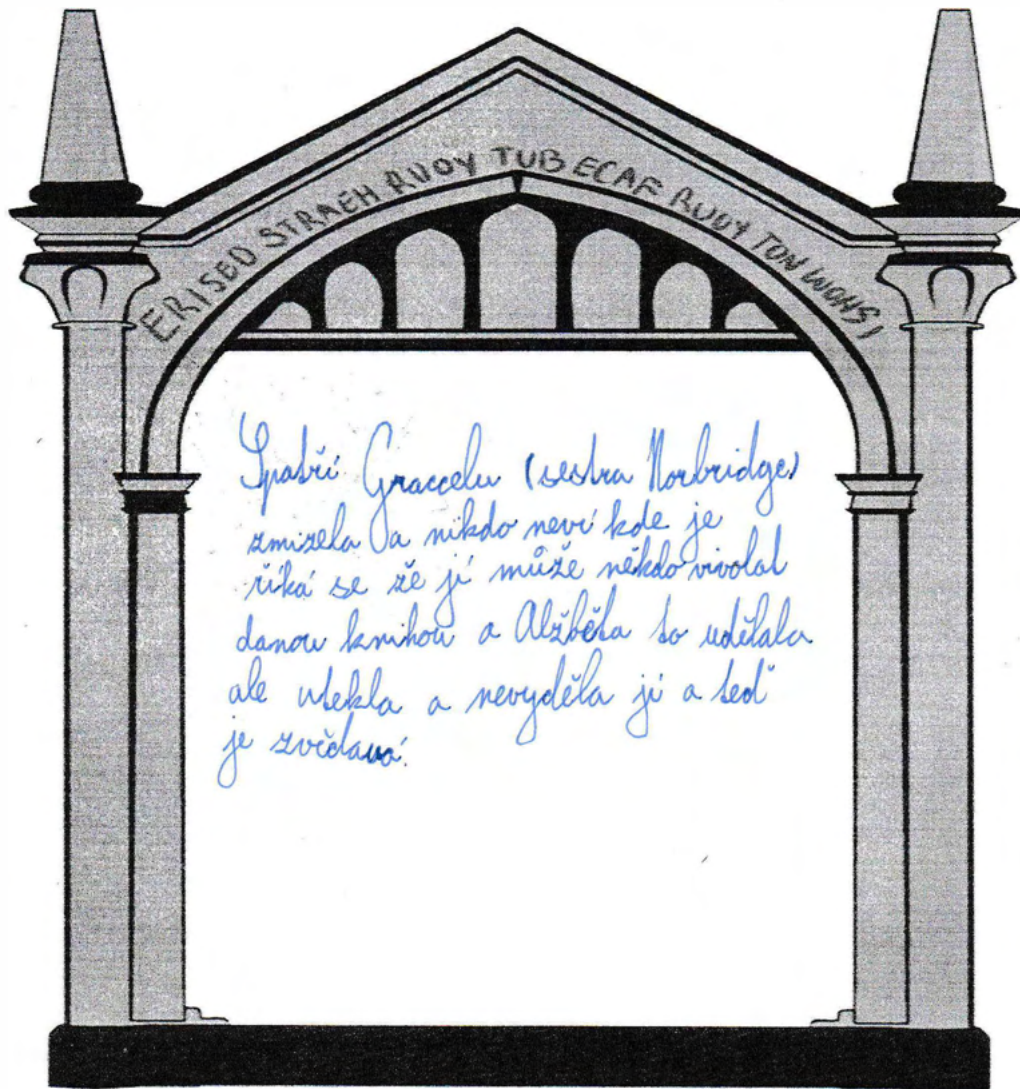 ERISED STRAEH RUOY TUB ECAF RUOY TON WOHSI
Spatří Graccelu (sestra Norbridge)
zmizela a nikdo neví kde je
říká se že jí může někdo vivolat
danou knihou a Alžběta to udělala
ale utekla a nevyděla jí a teď
je zvědavá.